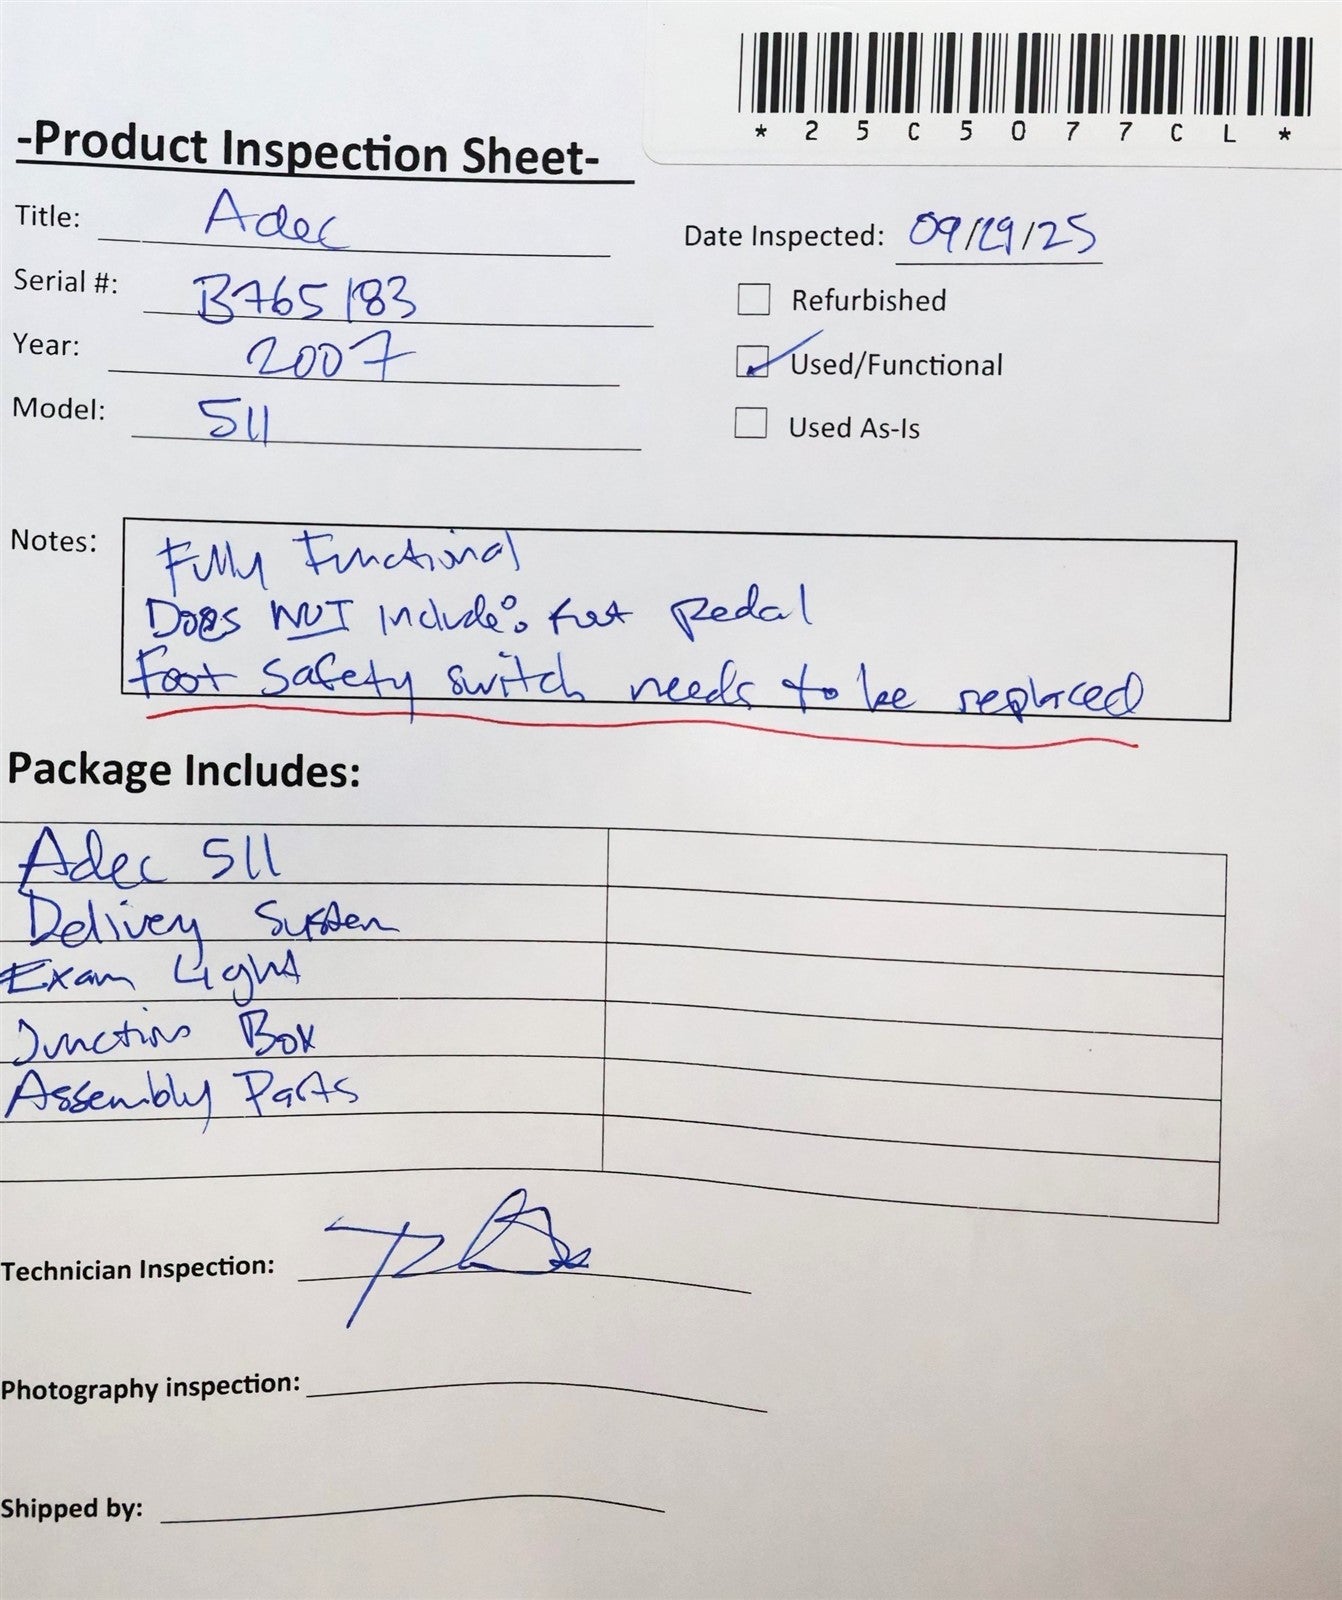 * 2 5 C 5 0 7 7 C L *
-Product Inspection Sheet-
Title: Adec
Date Inspected: 09/29/25
Serial #: B765183
Refurbished
Year: 2007
Used/Functional
Model: 511
Used As-Is
Notes: Fully Functional
Does NOT Include: foot pedal
Foot safety switch needs to be replaced
Package Includes:
Adec 511
Delivey System
Exam Light
Junction Box
Assembly Parts
Technician Inspection:
Photography inspection:
Shipped by: